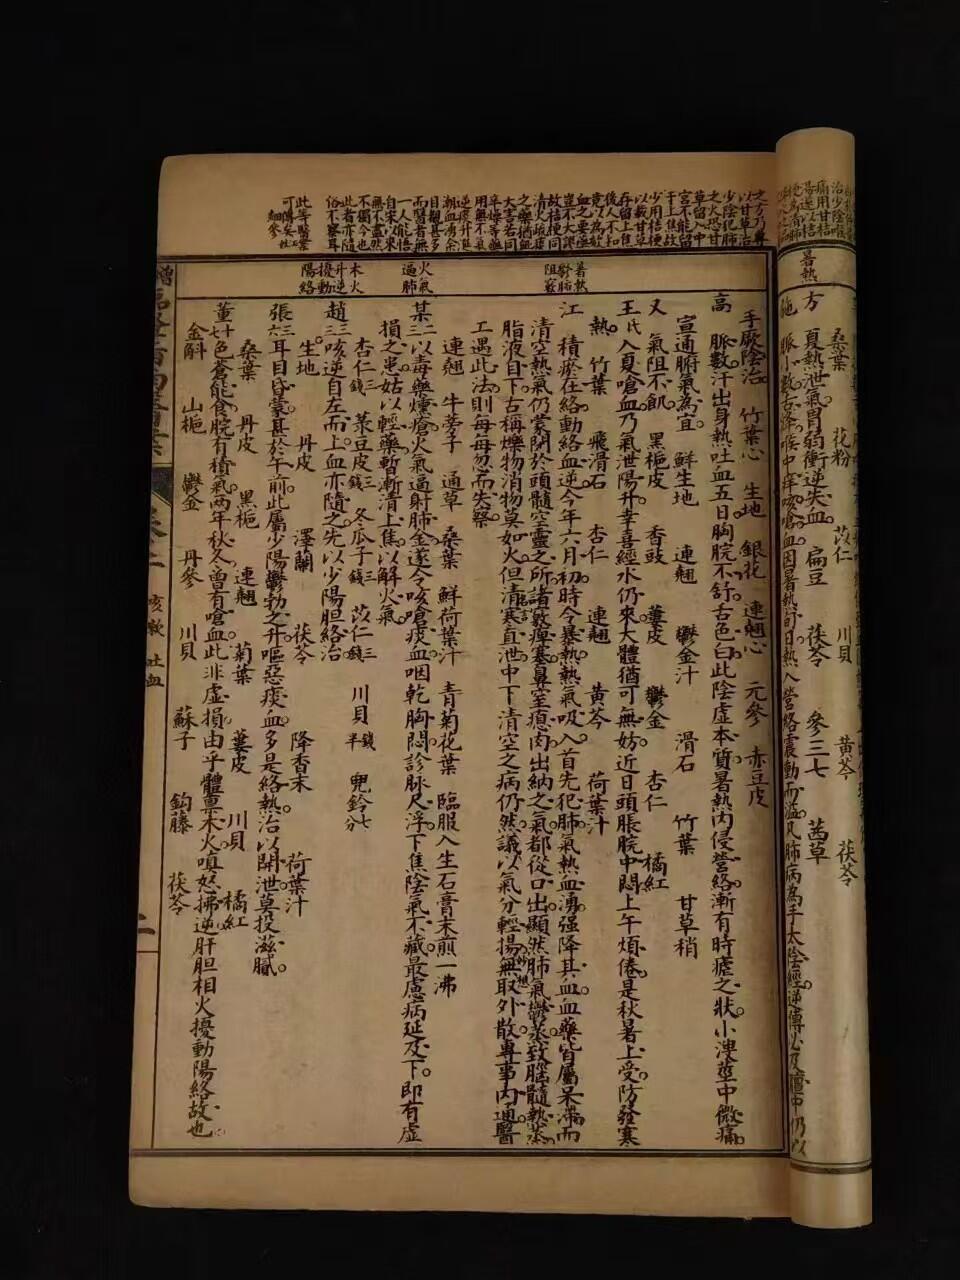 暑熱
方 夏熱泄氣胃弱衝逆失血
扁豆 茯苓 參三七 茜草
桑葉 花粉 苡仁 川貝 黃芩 茯苓
之方乃尊
以甘草古
少陰犯肺
之火恐甘
草留入中
宮不能留
于上焦故
少用桔梗
以載甘草
存留上焦
後人不知
竟以為欬
血之要藥
豈不大謬
故桔梗同
清火疏痰
之藥猶能
大害若同
辛燥等藥
用無不氣
逆痰升甚
潮血湧余
目覩甚多
而醫者無
一人能悟
自宋以來
無不盡然
不獨今也
此者亦隨
俗不察耳
此等醫案
可傳矣杜
細參
暑熱
鬱肺
阻竅
火氣
逼肺
木火
升逆
擾動
陽絡
手厥陰治 竹葉心 生地 銀花 連翹心 元參 赤豆皮
高 脈數汗出身熱吐血五日胸脘不舒舌色白此陰虛本質暑熱內侵營絡漸有時瘧之狀小溲莖中微痛
宣通腑氣為宜 鮮生地 連翹 鬱金汁 滑石 竹葉 甘草稍
又 氣阻不飢 黑梔皮 香豉 蔞皮 鬱金 杏仁 橘紅
王氏入夏嗆血乃氣泄陽升幸喜經水仍來大體猶可無妨近日頭脹脘中悶上午煩倦是秋暑上受防發寒
熱 竹葉 飛滑石 杏仁 連翹 黃芩 荷葉汁
江 積瘀在絡動絡血逆今年六月初時令暴熱熱氣吸入首先犯肺氣熱血湧强降其血血藥皆屬呆滯而
清空熱氣仍蒙閉於頭髓空靈之所諸竅痺塞鼻窒瘜肉出納之氣都從口出顯然肺氣鬱蒸致腦髓熱蒸
脂液自下古稱爍物消物莫如火但清寒直泄中下清空之病仍然議以氣分輕揚無取外散專事內通醫
工遇此法則每每忽而失察
連翹 牛蒡子 通草 桑葉 鮮荷葉汁 青菊花葉 臨服入生石膏末煎一沸
某二二以毒藥燻瘡火氣逼射肺金遂令咳嗆痰血咽乾胸悶診脈尺浮下焦陰氣不藏最慮病延及下即有虛
損之患姑以輕藥暫清上焦以解火氣
杏仁三錢 菉豆皮三錢 冬瓜子三錢 苡仁三錢 川貝錢半 兜鈴七分
趙三三咳逆自左而上血亦隨之先以少陽胆絡治
生地 丹皮 澤蘭 茯苓 降香末 荷葉汁
張三六耳目昏蒙甚於午前此屬少陽鬱勃之升嘔惡痰血多是絡熱治以開泄莫投滋膩
桑葉 丹皮 黑梔 連翹 菊葉 蔞皮 川貝 橘紅
董十七色蒼能食脘有積氣兩年秋冬曾有嗆血此非虛損由乎體禀木火嗔怒拂逆肝胆相火擾動陽絡故也
金斛 山梔 鬱金 丹參 川貝 蘇子 鈎藤 茯苓
卷二 咳嗽 吐血
二